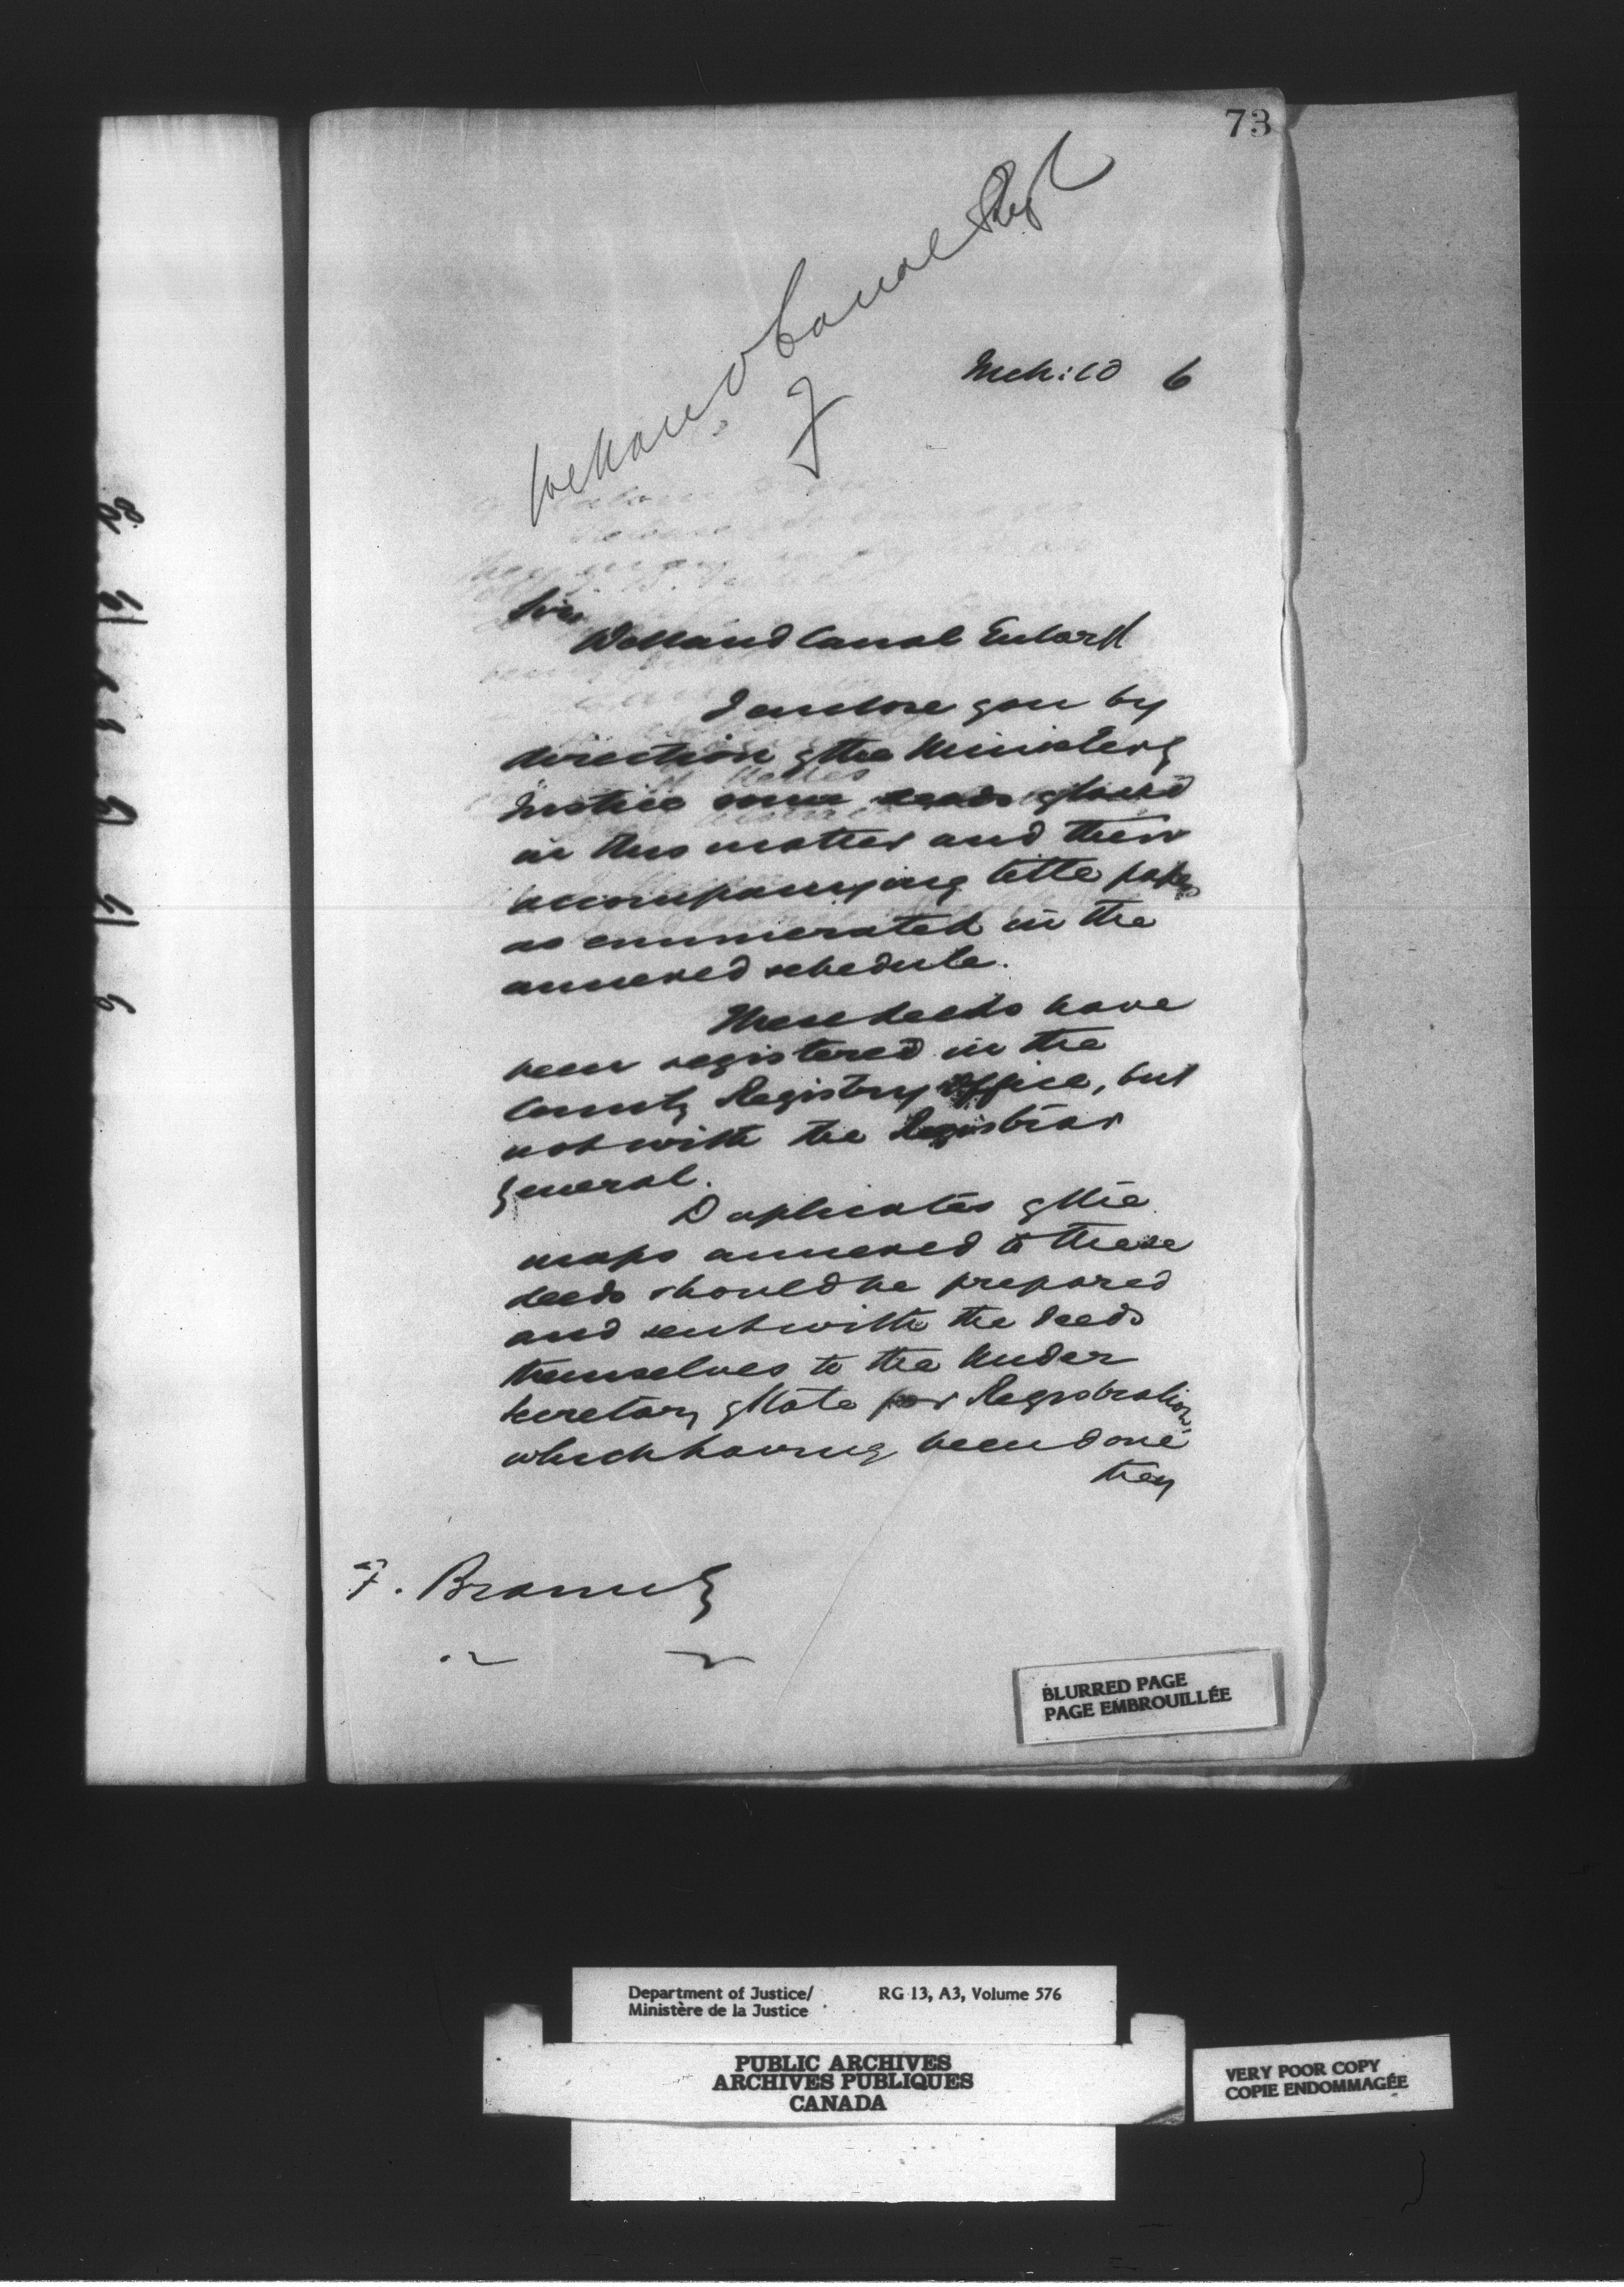 73
Welland Canal
Mch: 10 6
Sir,
Welland Canal Enlargt
I enclose you by
direction of the Minister of
Justice some deeds of land
in this matter and their
accompanying title papers
as enumerated in the
annexed schedule.
These deeds have
been registered in the
County Registry Office, but
not with the Registrar
General.
Duplicates of the
maps annexed to these
deeds should be prepared
and sent with the deeds
themselves to the Under
Secretary of State for Registration,
which having been done
they
F. Braun Esq
BLURRED PAGE
PAGE EMBROUILLÉE
Department of Justice/
Ministère de la Justice
RG 13, A3, Volume 576
PUBLIC ARCHIVES
ARCHIVES PUBLIQUES
CANADA
VERY POOR COPY
COPIE ENDOMMAGÉE